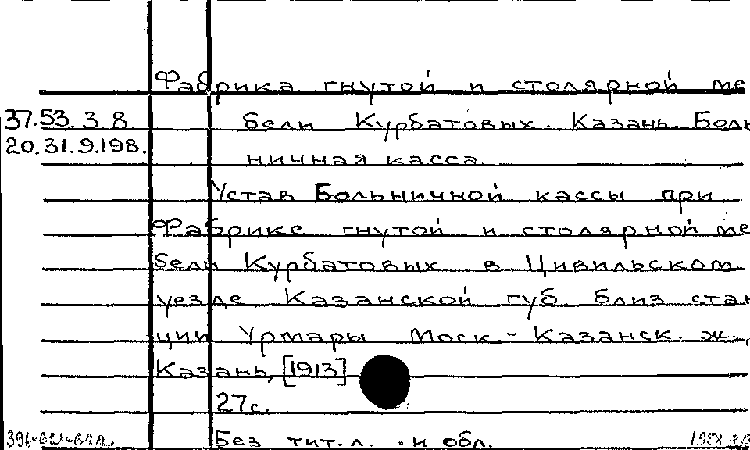 Фабрика гнутой и столярной ме
37.53.3.8 бели Курбатовых. Казань. Боль
20.31.9.198. ничная касса.
Устав Больничной кассы при
Фабрике гнутой и столярной ме
бели Курбатовых в Цивильском
уезде Казанской губ. близ стан
ции Урмары Моск-Казанск. ж.
Казань, [1913]
27с.
Без тит. л. и обл.